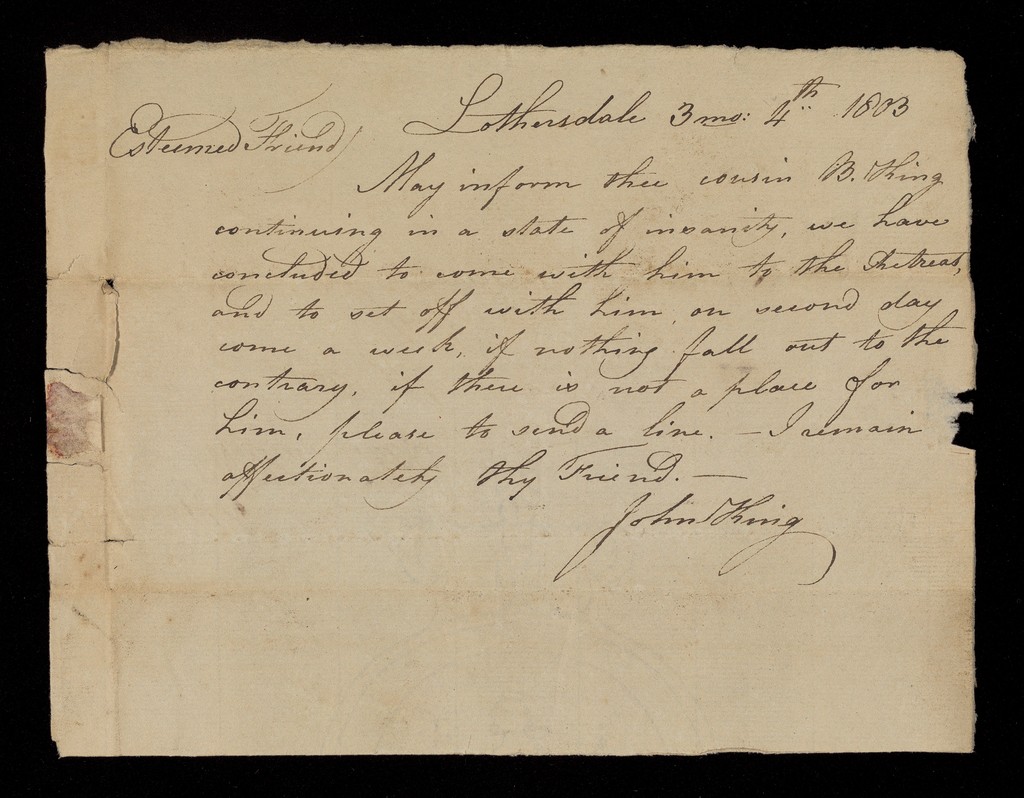 Lothersdale 3 mo: 4th 1803
Esteemed Friend
May inform thee cousin B. King
continuing in a state of insanity, we have
concluded to come with him to the Retreat,
and to set off with him on second day
come a week, if nothing fall out to the
contrary, if there is not a place for
him, please to send a line. – I remain
affectionately thy Friend. –
John King